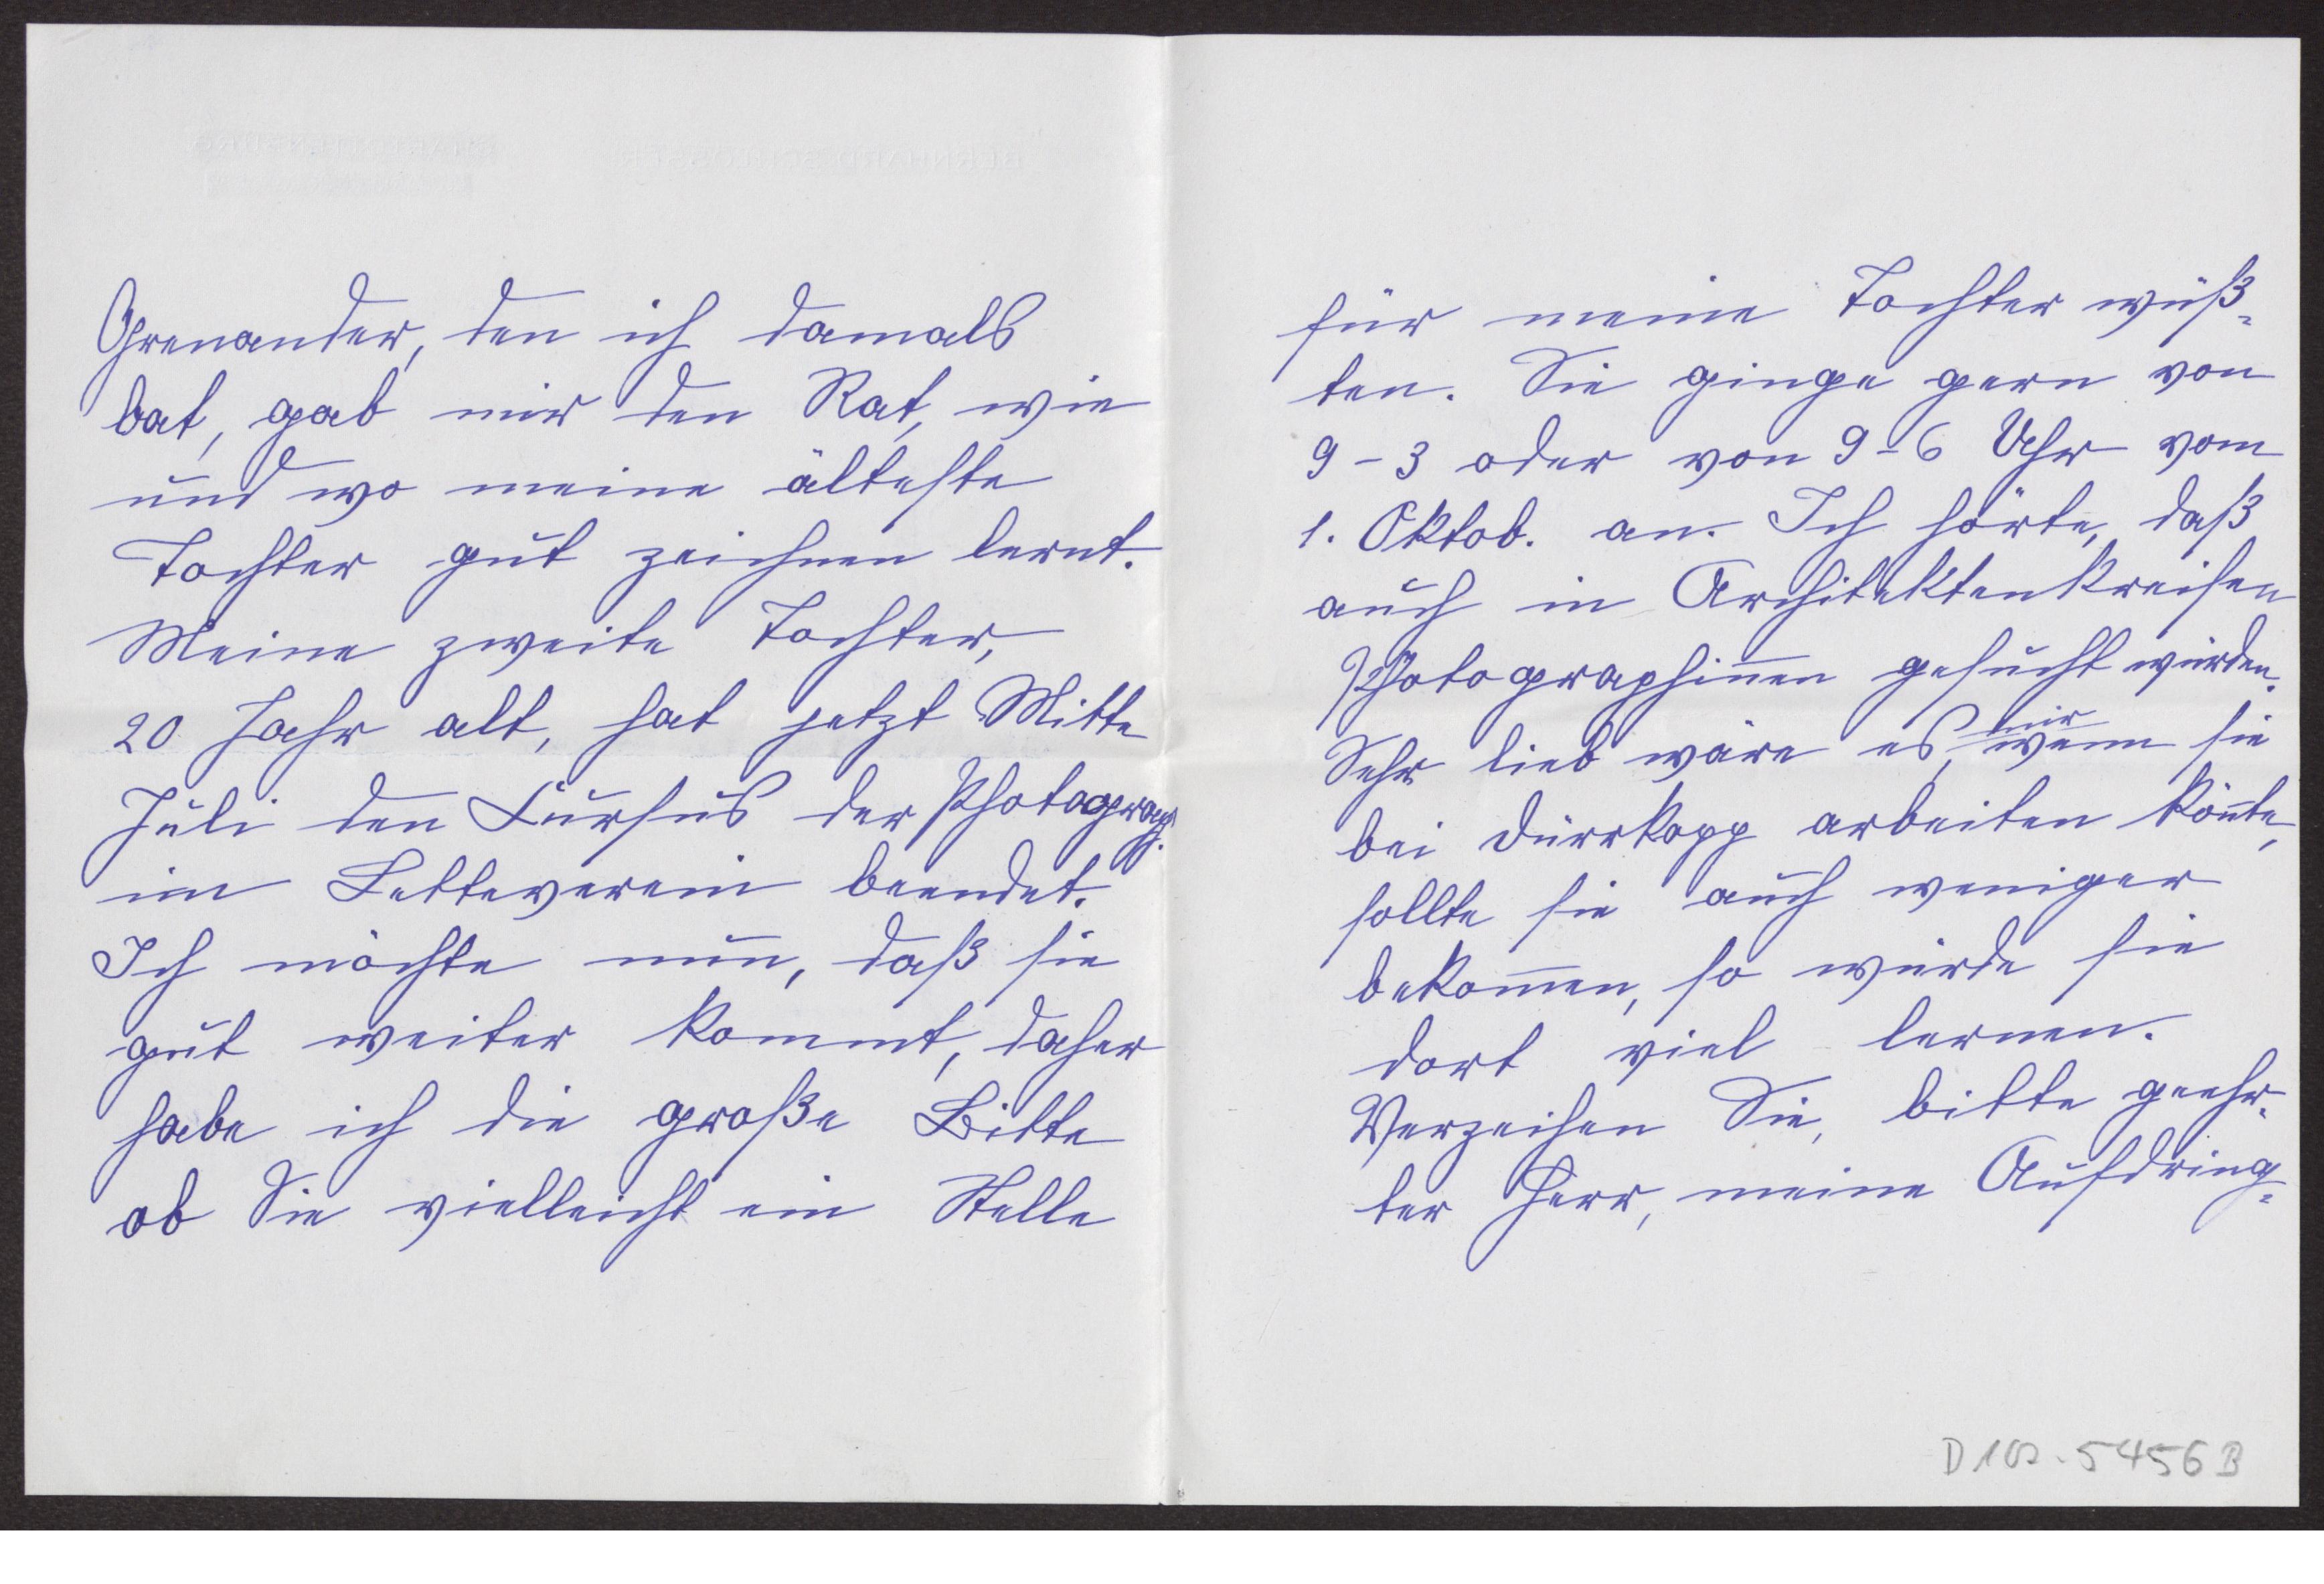 Grenander, den ich damals
bat, gab mir den Rat, wie
und wo meine älteste
Tochter gut zeichnen lernt.
Meine zweite Tochter,
20 Jahr alt, hat jetzt Mitte
Juli den Cursus der Photograph.
im Letteverein beendet.
Ich möchte nun, daß sie
gut weiter kommt, daher
habe ich die große Bitte
ob Sie vielleicht ein Stelle
für meine Tochter wüß-
ten. Sie ginge gern von
9-3 oder von 9-6 Uhr vom
1. Oktob. an. Ich hörte, daß
auch in Architektenkreisen
Photographiñen gesucht würden.
Sehr lieb wäre es mir, wenn sie
bei Dürrkopp arbeiten köñte,
sollte sie auch weniger
bekom̄en, so würde sie
dort viel lernen.
Verzeihen Sie, bitte geehr-
ter Herr, meine Aufdring-
D 102.5456 B